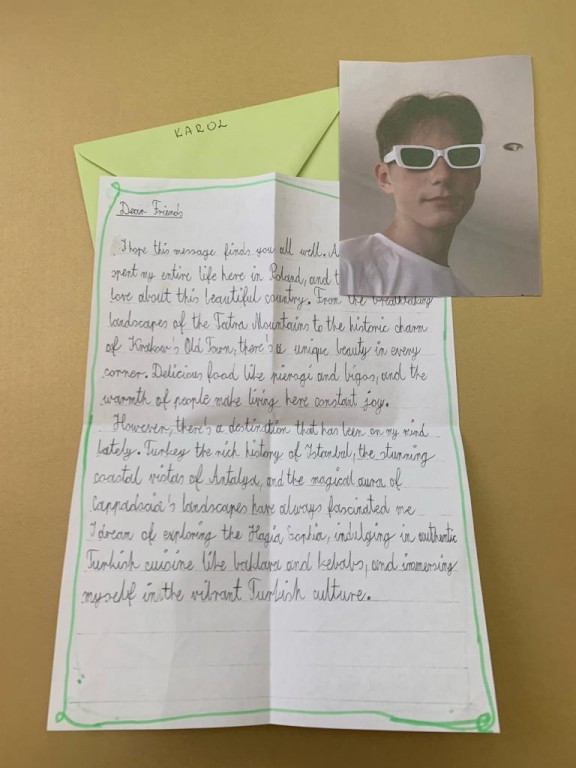 KAROL
Dear Friends
I hope this message finds you all well. A
spent my entire life here in Poland, and t
love about this beautiful country. From the breathtaking
landscapes of the Tatra Mountains to the historic charm
of Krakow's Old Town, there's a unique beauty in every
corner. Delicious food like pierogi and bigos, and the
warmth of people make living here constant joy.
However, there's a destination that has been on my mind
lately. Turkey the rich history of Istanbul, the stunning
coastal vistas of Antalya, and the magical aura of
Cappadocia's landscapes have always fascinated me
I dream of exploring the Hagia Sophia, indulging in authentic
Turkish cuisine like baklava and kebabs, and immersing
myself in the vibrant Turkish culture.